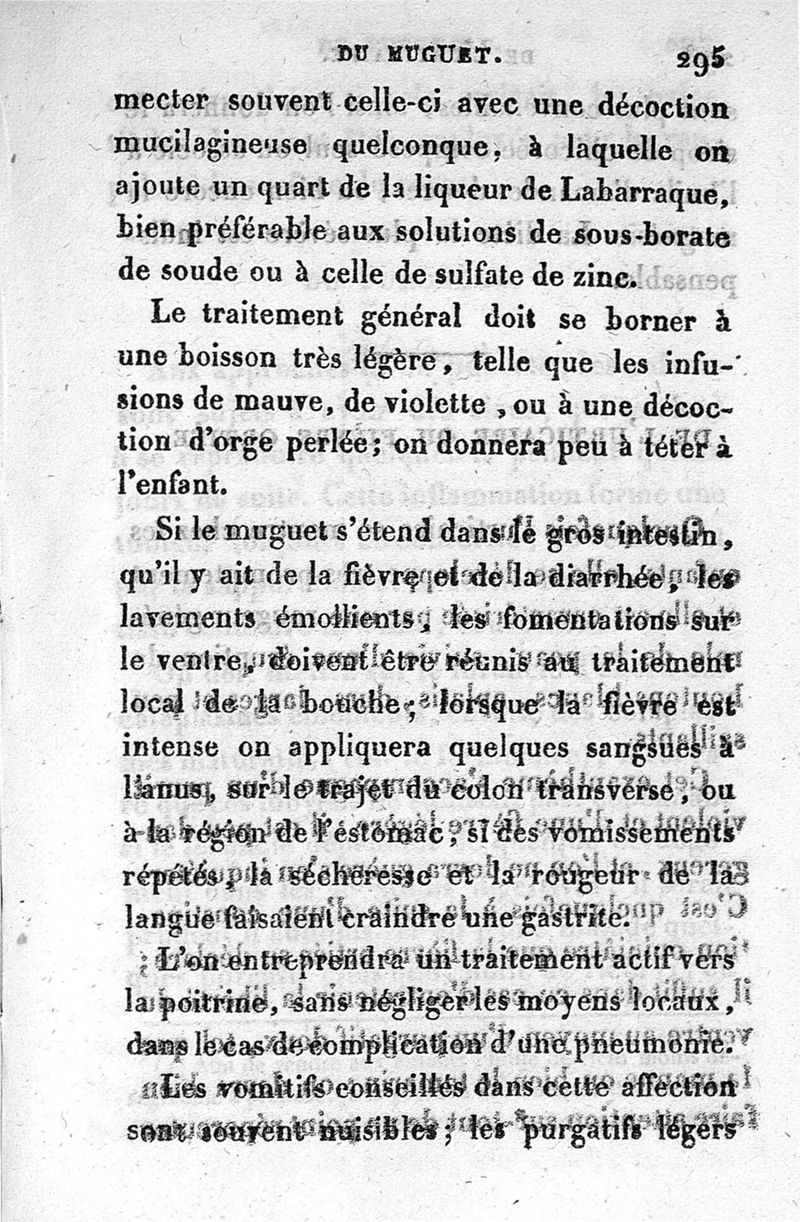 DU MUGUET. 295
mecter souvent celle-ci avec une décoction
mucilagineuse quelconque, à laquelle on
ajoute un quart de la liqueur de Labarraque,
bien préférable aux solutions de sous-borate
de soude ou à celle de sulfate de zinc.
Le traitement général doit se borner à
une boisson très légère, telle que les infu-
sions de mauve, de violette, ou à une décoc-
tion d'orge perlée; on donnera peu à téter à
l'enfant.
Si le muguet s'étend dans le gros intestin,
qu'il y ait de la fièvre et de la diarrhée, les
lavements émollients, les fomentations sur
le ventre, doivent être réunis au traitement
local de la bouche; lorsque la fièvre est
intense on appliquera quelques sangsues à
l'anus, sur le trajet du colon transverse, ou
à la région de l'estomac, si des vomissements
répétés, la sécheresse et la rougeur de la
langue faisaient craindre une gastrite.
L'on entreprendra un traitement actif vers
la poitrine, sans négliger les moyens locaux,
dans le cas de complication d'une pneumonie.
Les vomitifs conseillés dans cette affection
sont souvent nuisibles; les purgatifs légers